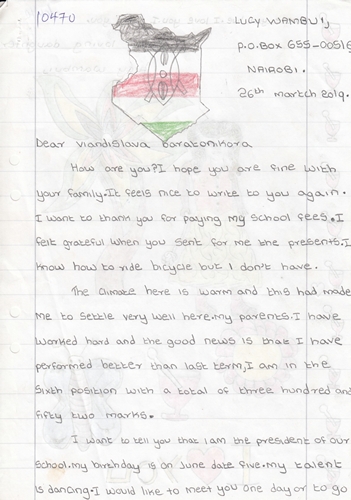 10470
Lucy Wambui,
P.O.Box 655-00516
NAIROBI.
26th march 2019.
Dear Viandislava
How are you?I hope you are fine with
your family.It feels nice to write to you again.
I want to thank you for paying my school fees.I
felt grateful when you sent for me the presents.I
know how to ride bicycle but I don't have.
The climate here is warm and this had made
me to settle very well here.my parents.I have
worked hard and the good news is that I have
performed better than last term,I am in the
sixth position with a total of three hundred and
fifty two marks.
I want to tell you that I am the president of our
school.my birthday is on June date five.my talent
is dancing.I would like to meet you one day or to go